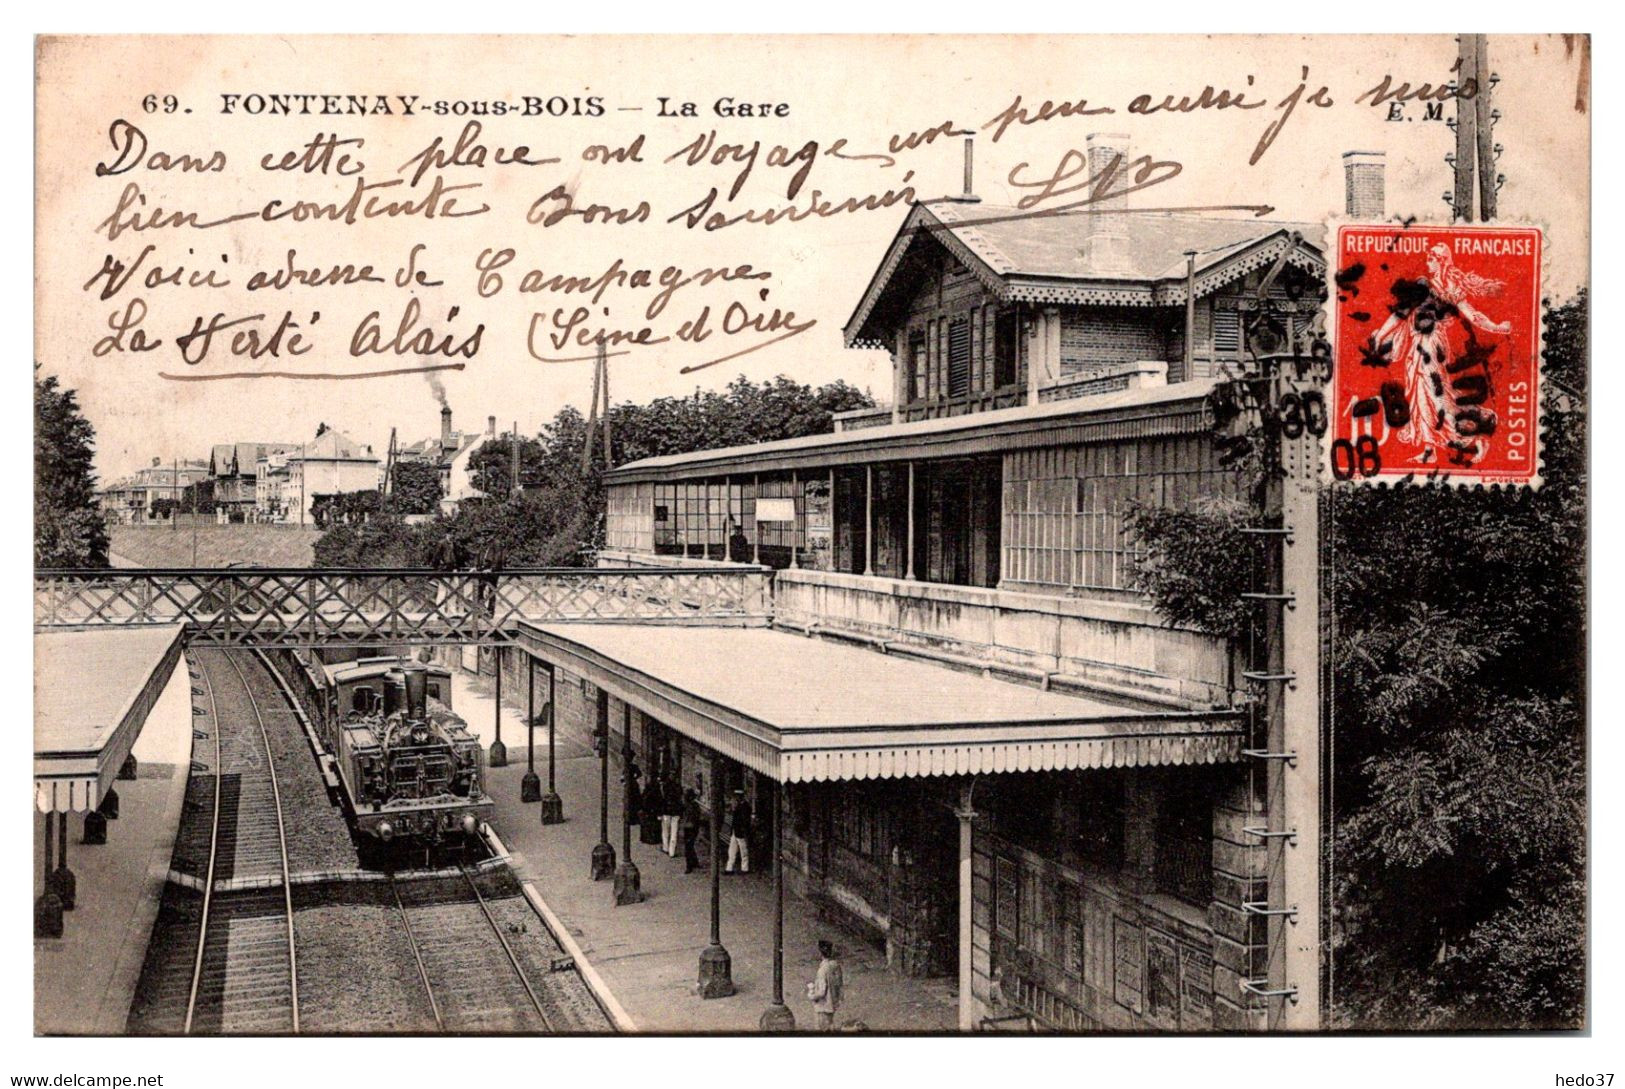 69. FONTENAY-sous-BOIS — La Gare
E. M.
Dans cette place ont voyage un peu aussi je suis
bien contente Bons Souvenir
Voici adresse de Campagne
La Ferté Alais (Seine et Oise
RÉPUBLIQUE FRANÇAISE
POSTES
10
30 -8
08
Delcampe.net
hedo37